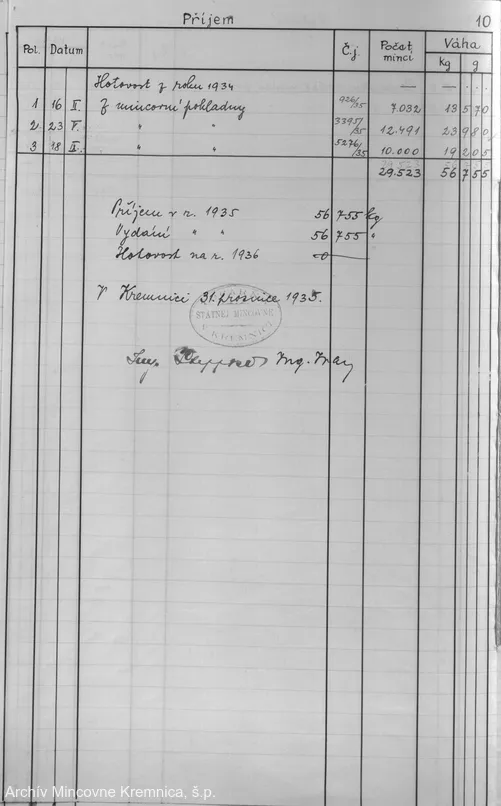 Příjem 10
Pol. Datum Č.j. Počat mincí Váha
kg g
Hotovost z roku 1934 — — —
1 16 II. Z mincovní pokladny 926/35 7.032 13 570
2 23 V. " " 3395/35 12.491 23 980
3 18 IX. " " 5276/35 10.000 19 205
29.523 56 755
Příjem v r. 1935 56 755 kg
Vydání " " 56 755 "
Hotovost na r. 1936 —0—
V Kremnici 31. prosince 1935.
STÁTNEJ MINCOVNE
V KREMNICI
Ing.
Archív Mincovne Kremnica, š.p.